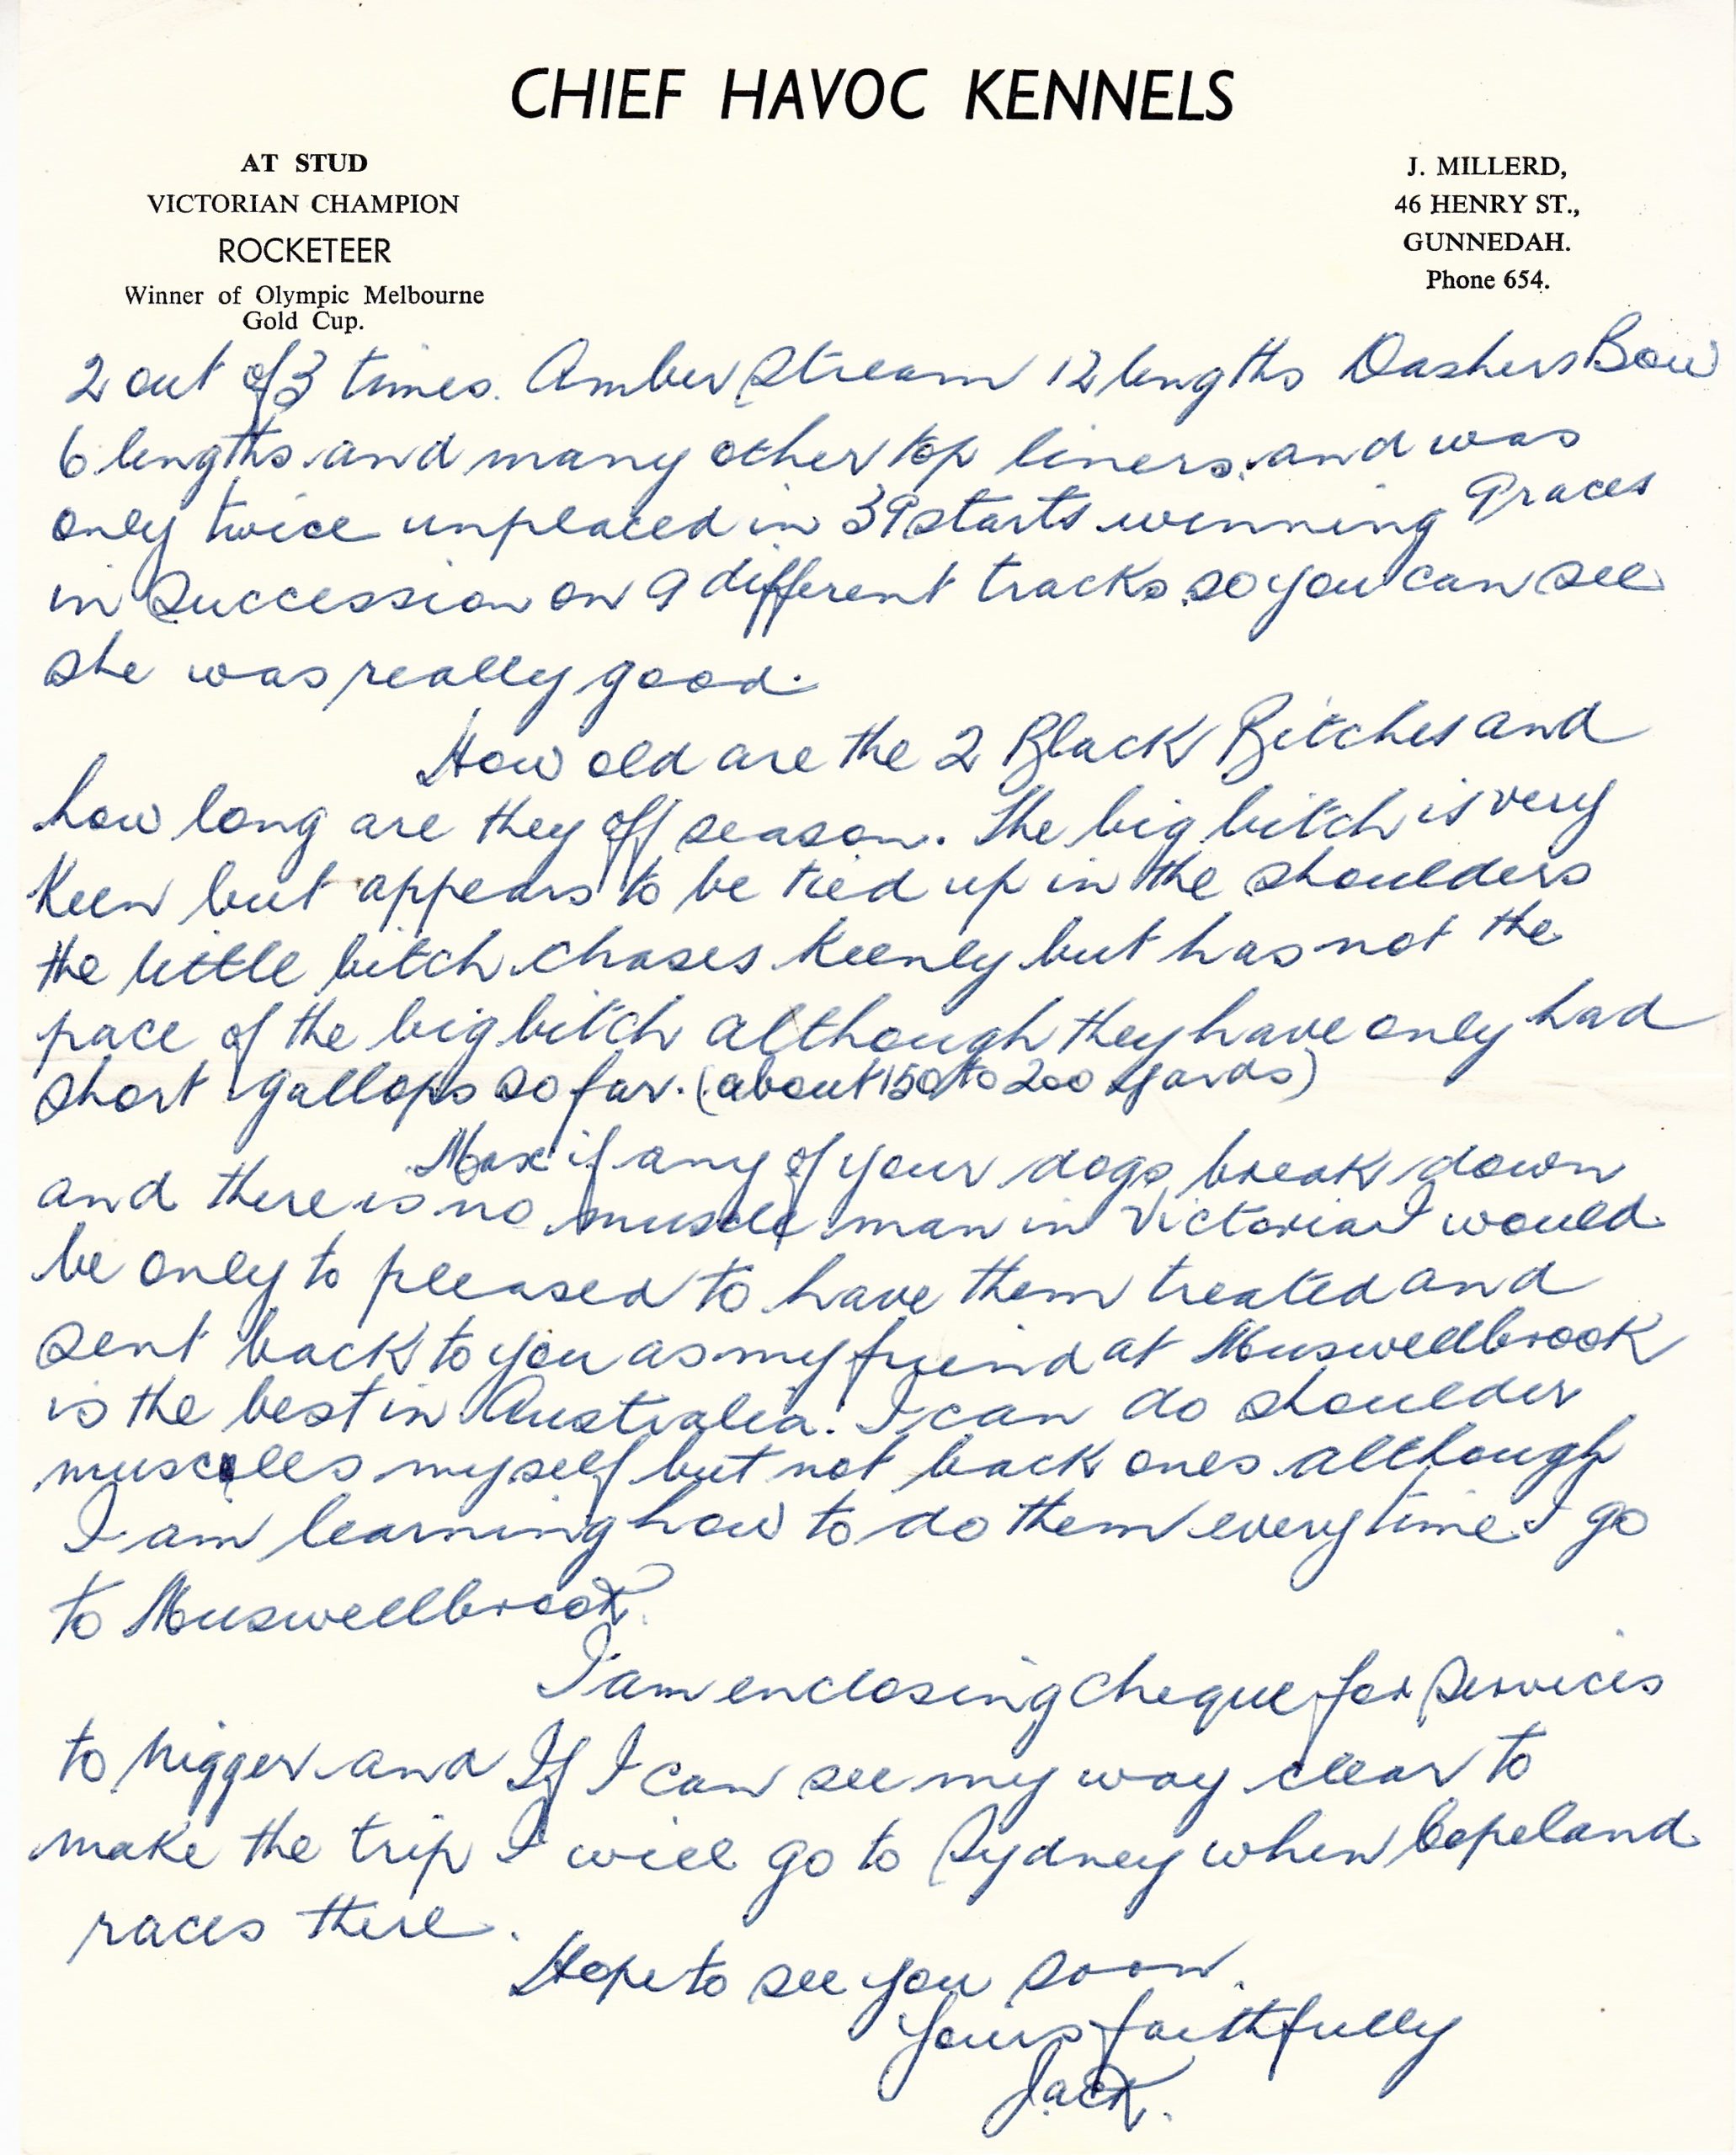 CHIEF HAVOC KENNELS
AT STUD
VICTORIAN CHAMPION
ROCKETEER
Winner of Olympic Melbourne
Gold Cup.
J. MILLERD,
46 HENRY ST.,
GUNNEDAH.
Phone 654.
2 out of 3 times. Amber Stream 12 lengths Dashers Bow
6 lengths and many other top liners. and was
only twice unplaced in 39 starts winning 9 races
in Succession on 9 different tracks so you can see
she was really good.
How old are the 2 Black Bitches and
how long are they off season. The big bitch is very
Keen but appears to be tied up in the shoulders
the little bitch chases keenly but has not the
pace of the big bitch although they have only had
short gallops so far. (about 150 to 200 yards)
Max if any of your dogs break down
and there is no muscle man in Victoria I would
be only to pleased to have them treated and
sent back to you as my friend at Muswellbrook
is the best in Australia. I can do shoulder
muscles myself but not back ones although
I am learning how to do them every time I go
to Muswellbrook.
I am enclosing cheque for Services
to Nigger and If I can see my way clear to
make the trip I will go to Sydney when Copeland
races there.
Hope to see you soon.
Yours faithfully
Jack.